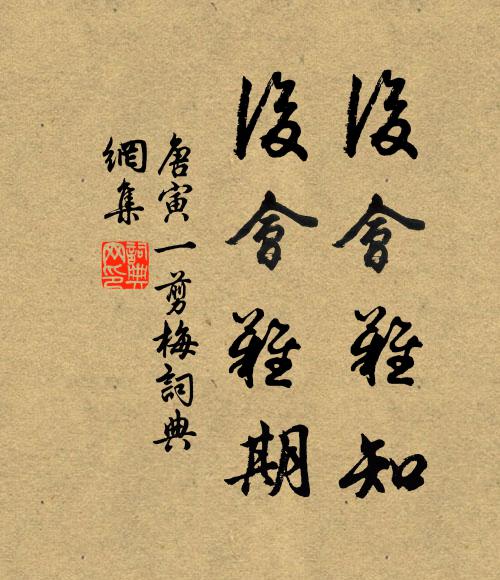 後會難知
後會難期
唐寅一剪梅詞典
網集
詞典網印